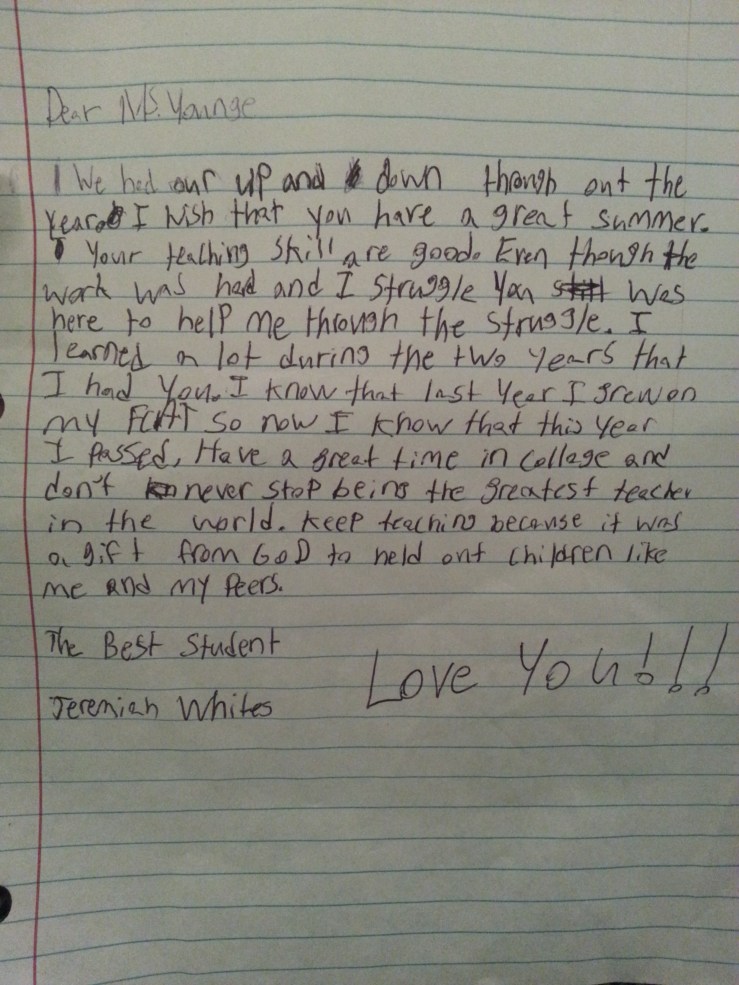 Dear Ms. Younge
We had our up and down through out the
year. I wish that you have a great summer.
Your teaching skill are good. Even though the
work was had and I struggle you was
here to help me through the struggle. I
learned a lot during the two years that
I had you. I know that last year I grew on
my FCAT so now I know that this year
I passed, Have a great time in collage and
don't never stop being the greatest teacher
in the world. Keep teaching because it was
a gift from GOD to held out children like
me and my peers.
The Best Student
Love You!!!
Jeremiah Whites